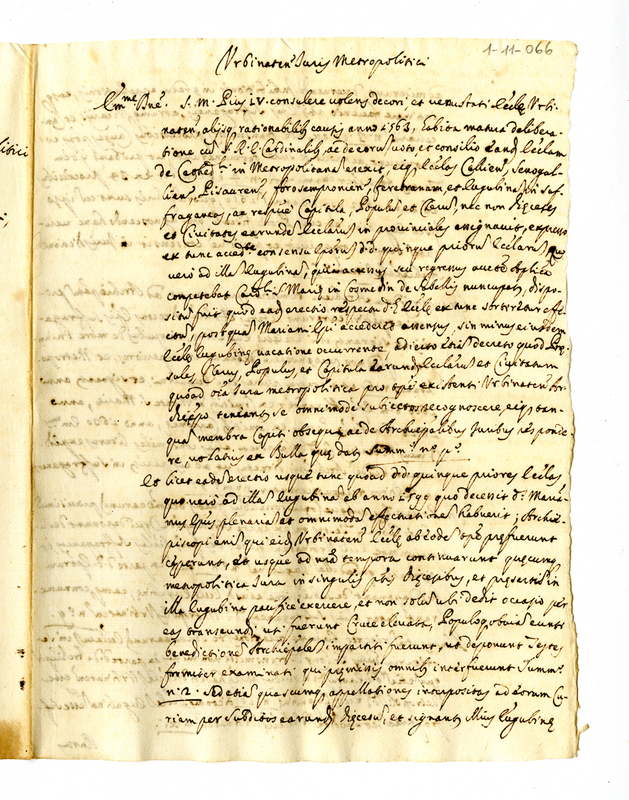 1-11-066
Urbinaten Iuris Metropolitici
Em̃me Dñe. S. M. Pius IV. consulere volens decori, et venustati Ecclẽ Urbi-
naten, aliisq, rationabilib causis anno 1563, habita matura delibera-
tione cũ RR. Cardinalib, ac de eorũ voto et consilio eand Ecclam
in Metropolitanã erexit, eiq Ecclas Callien, Senogal-
lien, Pisauren, forosempronien, feretranam, et Eugubinã in suf-
fraganeas, ac respive Capitula, Populũ et Clerũ, nec non Dięceses
et Civitates earundẽ Ecclarũ in provinciales assignavit, expresso
et tunc acced.te consensu Epõrũ dd. quinque priorũ Ecclarũ, quo
vero ad illã Eugubinã, accessus seu regressus aucte Aplica
competebat Card. S. Marię in Cosmedin de nuncupato, dispo-
sitũ fuit quod ead erectio respectu d. Ecclę ex tunc sortiretur effe-
ctũ, postquã Mariani Epi accederet assensus, sin minus eiusdem
Ecclę Eugubinę vacatione occurrente, adiecto etiã decreto quod Prę-
sules, Clerus, Populus, et Capitula earund Ecclarũ et Civitatum
quoad oĩa Iura metropolitica pro tpẽ existenti Urbinaten Ar-
chiepõ teneant se omnimode subiectos recognoscere, eiq tan-
quã membra Capiti obsequi, ac de Archiepalibus Iuribus responde-
re, ut latius ex Bulla quę dat Summ. n.o p.o
Et licet eadẽ erectio usque tunc quoad dd. quinque priores Ecclas
quo vero ad illã Eugubinã ab anno 1599 quo decessit d. Maria-
nus Epus plenariã et omnimodã effectuationẽ habuerit; Archie-
piscopi enim qui eidẽ Urbinaten Ecclę ab eodẽ tpẽ pręfuerunt
cęperunt, et usque ad nrã tempora continuarunt quęcumq
metropolitica Iura in singulis Dięcesibus, et pręsertim in
illa Eugubina pacifice exercere, et non solũ ubi dedit occasio per
eas transeundi uti fuerunt Cruce elevata, Populoq obviã eunti
benedictionẽ Archiepalẽ impartiti fuerunt, ut deponunt Testes
formiter examinati qui pręmissis omnib interfuerunt Summ.
n. 2. Sed etiã quascumq appellationes interpositas ad eorum Cu-
riam per subditos earund Dięcesũ, et signantẽ illius Eugubinę